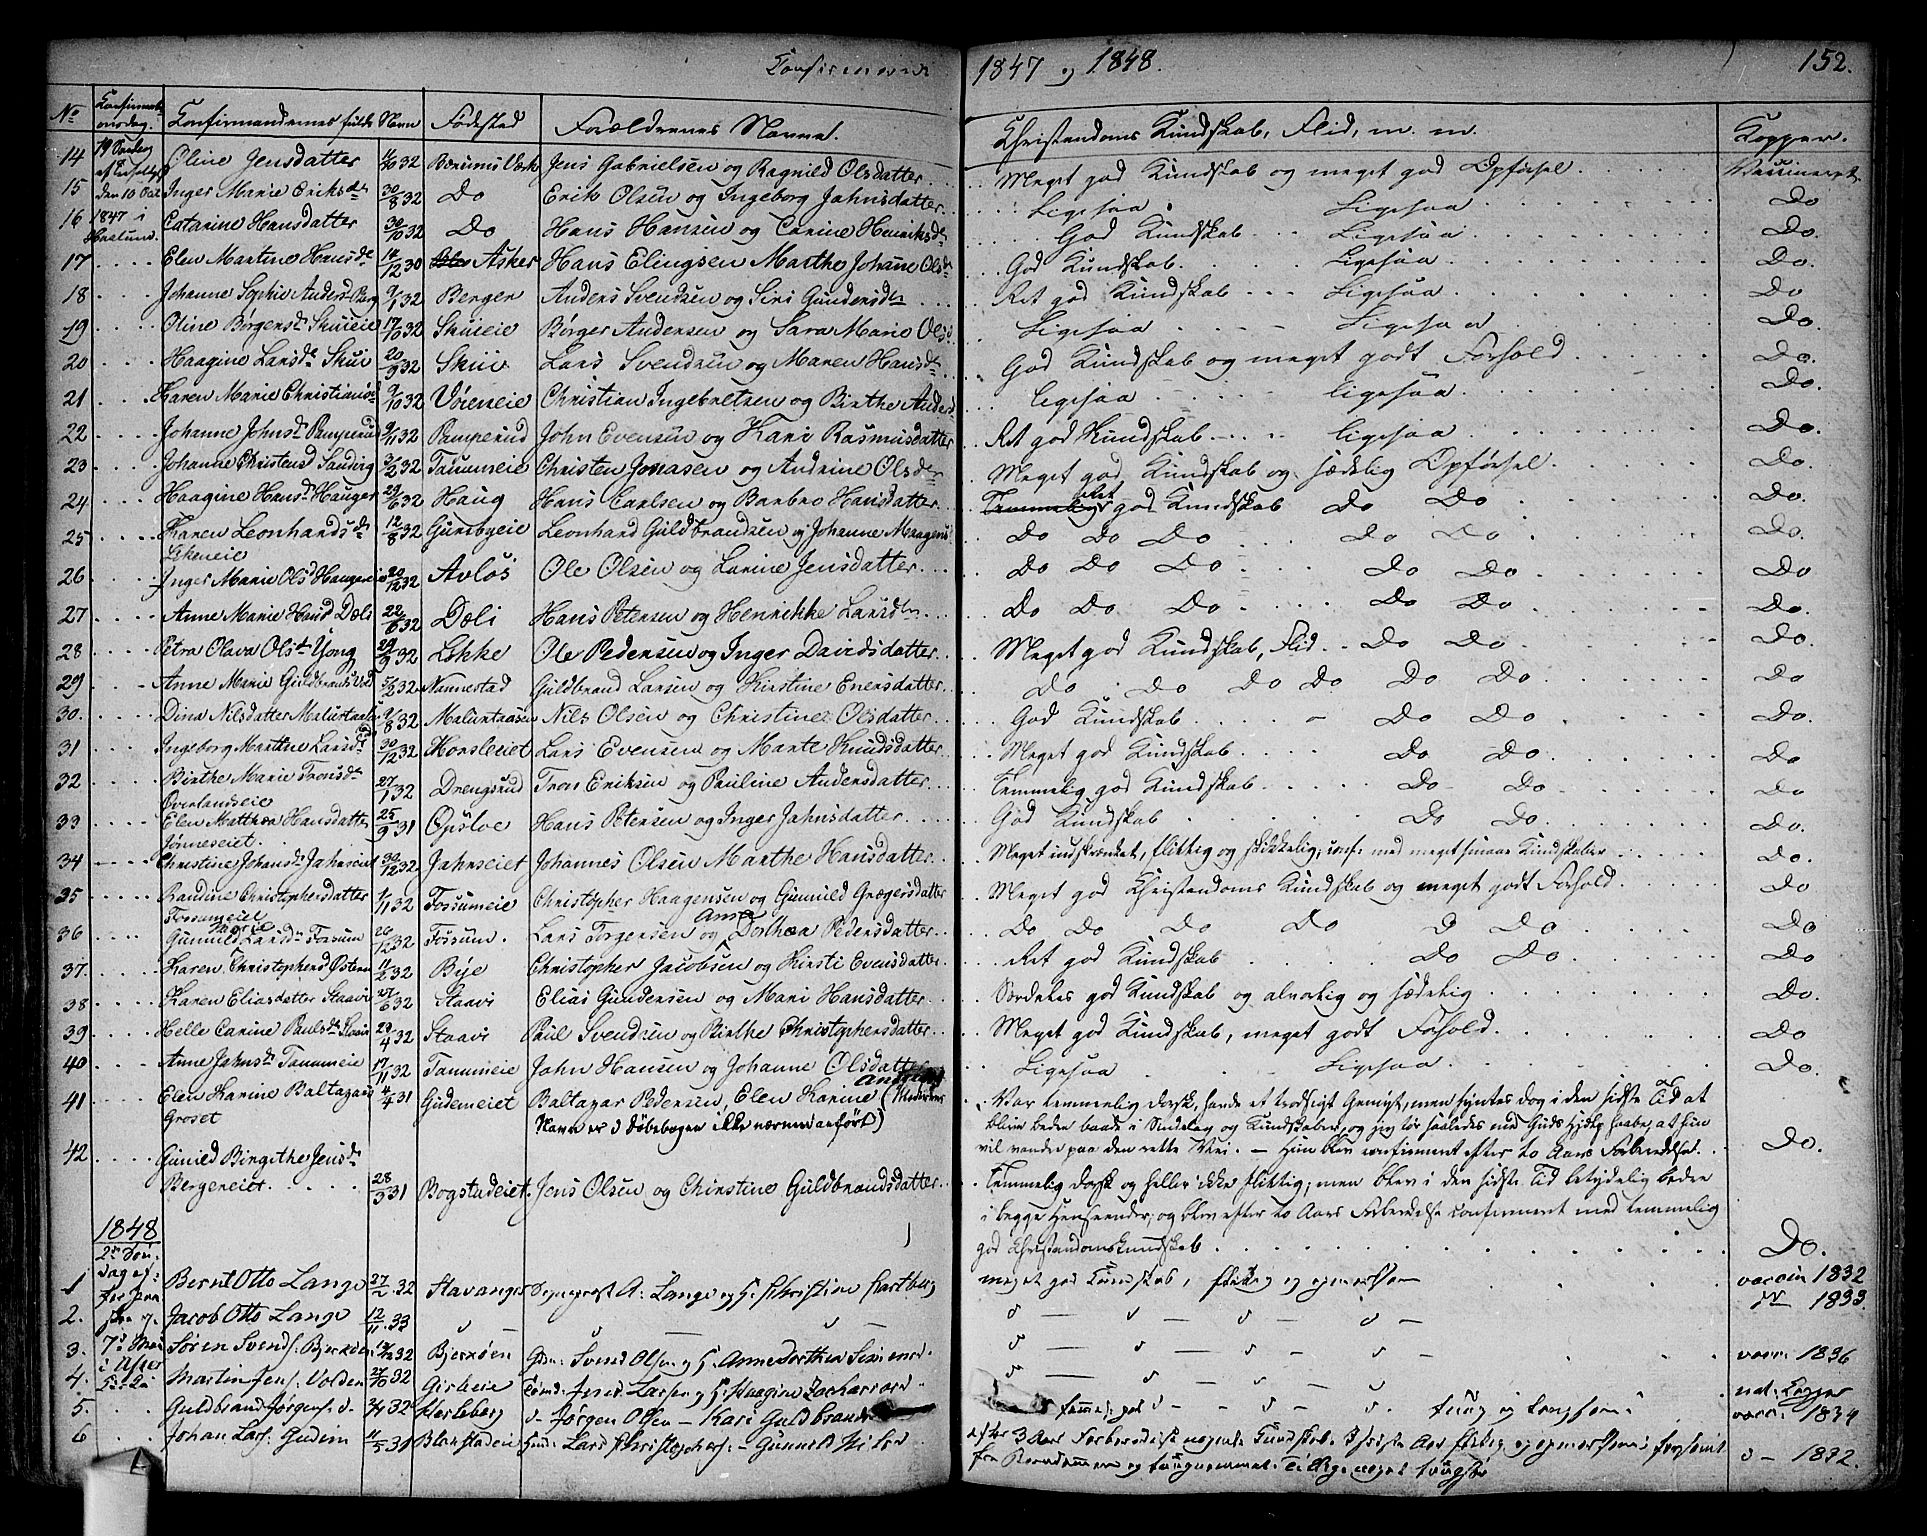 Confirmerede 1847 og 1848. 152.
No Confirmationsdag. Confirmandernes fulde Navn Fødested Forældrenes Navne. Christendoms Kundskab, Flid, m. m. Kopper.
14 19 Søndag Oline Jensdatter 32 Bærums Værk Jens Gabrielsen og Ragnild Olsdatter Meget god Kundskab og meget god Opførsel Vaccineret
15 den 10 Oct. Inger Marie Eriksdr 30/8 32 Do Erik Olsen og Ingeborg Jahnsdatter Ligesaa Ligesaa Do
16 1847 i Haslund. Catarine Hansdatter 30/10 32 Do Hans Hansen og Carine Henriksdr God Kundskab Ligesaa Do.
17 Elen Martine Hansdr 14/12 30 Asker Hans Elingsen Marthe Johanne Olsdr God Kundskab Ligesaa Do.
18 Johanne Sophie Andersd Berg 9/1 32 Berger Anders Svendsen og Siri Gundersdr Ret god Kundskab Ligesaa Do
19 Oline Børgensdr Skuieie 17/10 32 Skuieie Børger Andersen og Sara Marie Olsd Ligesaa Ligesaa Do.
20 Haagine Larsdr Skui 20/9 32 Skui Lars Svendsen og Maren Hansdr God Kundskab og meget godt Forhold Do.
21 Karen Marie Christiansd 9/10 32 Vøieneie Christian Ingebretsen og Birthe Andersd ligesaa ligesaa Do.
22 Johanne Johnsd Pamperud 9/11 32 Pamperud John Evensen og Kari Rasmusdatter Ret god Kundskab ligesaa Do.
23 Johanne Christensd Sandvig 3/2 32 Tanumeie Christen Jonasen og Andrine Olsdr Meget god Kundskab og sædelig Opførsel Do.
24 Haagine Hansd Hauger 29/6 32 Haug Hans Carlsen og Barbro Hansdatter Temmelig ret god Kundskab Do Do Do.
25 Karen Leonhardsdr 12/8 32 Gursbyeie Leonhard Guldbrandsen og Johanne Maagens Do Do Do Do Do Do
Lekeneie
26 Inger Marie Olsd Haugereie 20/12 32 Avløs Ole Olsen og Larine Jensdatter Do Do Do Do Do Do
27 Anne Marie Hansd Dæli 22/6 32 Dæli Hans Petersen og Henrikke Larsdr Do Do Do Do Do Do.
28 Petra Olava Olsdr Yong 29/9 32 Løkke Ole Pedersen og Inger Davidsdatter Meget god Kundskab, Flid Do Do Do
29 Anne Marie Guldbrandsd 5/2 32 Nannestad Guldbrand Larsen og Kirstine Enersdatter Do Do Do Do Do Do Do
30. Dina Nilsdatter 9/8 32 Nils Olsen og Christine Olsdatter God Kundskab Do Do Do
31 Ingeborg Marthe Larsd 30/12 32 Horsleiet Lars Evensen og Marte Knudsdatter Meget god Kundskab Do Do Do
32 Birthe Marie Tronsdr 27/1 32 Drengsrud Tron Eriksen og Pauline Andersdatter Temmelig god Kundskab Do Do Do
Øverlandseie
33 Elen Mathea Hansdatter 25/9 31 Opsloe Hans Petersen og Inger Jahnsdatter God Kundskab Do Do Do.
Jønneseiet.
34 Christine Johansdr Jahrseiet 30/12 32 Jahrseiet Johannes Olsen Marthe Hansdatter Meget indskrænket, flittig og skikkelig; conf. med meget smaae Kundskaber Do.
35 Randine Christophersdatter 1/11 32 Fossumeie Christopher Haagensen og Gunnild Grægersdatter Meget god Christendoms Kundskab og meget godt Forhold Do
Fossumeiet
36 Gunnild Marie Larsdr Fossum 26/12 32 Fossum. Lars Torgersen og Anne Dorthea Pedersdatter Do Do Do Do D Do Do
37. Karen Christophersd Østern 11/2 32 Bye Christopher Jacobsen og Kirsti Evensdatter Ret god Kundskab Do Do Do
38 Karen Eliasdatter Staavi 27/6 32 Staavi Elias Gundersen og Mari Hansdatter Særdeles god Kundskab og alvorlig og sædelig Do.
39 Helle Carine Paulsdr Staavi 29/4 32 Staavi Paul Svendsen og Birthe Christophersdatter Meget god Kundskab, meget godt Forhold Do
40 Anne Jahnsdr Tanumeie 17/11 32 Tanumeie John Hansen og Johanne Olsdatter Ligesaa Ligesaa Do.
41 Elen Karine Baltazarsd 4/4 31 Gudemeiet Baltazar Pedersen, Elen Karine (Moderens Var temmelig dorsk, havde et trodsigt Gemyt, men syntes dog i den sidste Tid at
Groset Navn er i Døbebogen ikke nærmere anført) blive beder baade i Sindelag og Kundskaber, og jeg tør saaledes med Guds Hjælp haabe, at hun
vil vandre paa den rette Vei. – Hun blev confirmeret efter to Aars Forberedelse. Do.
42 Gunild Birgithe Jensdr
Bergereiet 28/3 31 Bogstadeiet. Jens Olsen og Christine Guldbrandsdatter Temmelig dorsk og heller ikke flittig; men blev i den sidste Tid betydelig bedre
i begge Henseender; og blev efter to Aars Forberedelse confirmeret med temmelig
god Christendomskundskab Do.
1848
2n Søndag efter Paaske
1 Bernt Otto Lange 27/2 32 Stavanger A: Lange og H: Christine meget god Kundskab, flittig og opmerksom vaccin 1832
2. Jacob Otto Lange 12/11 33 1833.
3. 7d Mai i Asker Søren Svends: Bjerkøen 32 Bjerkøen Svend Olsen og H: Anne Dorthea vacc: 1836
4. Martin Jens: Volden 27/10 32 Girleie Jens Larsen og H: Haagine Zachariasd nat: Kopper
5 Guldbrand Jørgens: 32 Herleberg Jørgen Olsen – Kari Guldbrands temmelig god vacc: 1834
6 Johan Lars: Gudem 11/5 30 Blakstadeie Lars Christophers: – Gunnild Nilsd efter 3 Aars Forberedelse nogenl: Kundskab. – 1832.